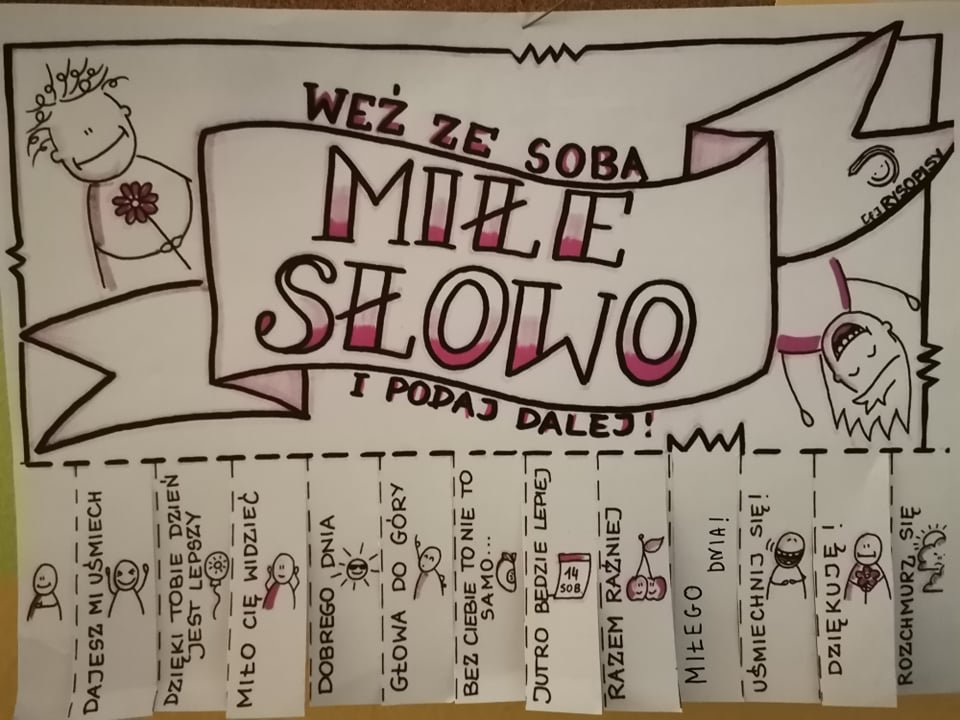 WEŹ ZE SOBĄ
MIŁE
SŁOWO
I PODAJ DALEJ!
RYSOPISY
DAJESZ MI UŚMIECH
DZIĘKI TOBIE DZIEŃ
JEST LEPSZY
MIŁO CIĘ WIDZIEĆ
DOBREGO DNIA
GŁOWA DO GÓRY
BEZ CIEBIE TO NIE TO
SAMO...
JUTRO BĘDZIE LEPIEJ
14
SOB
RAZEM RAŹNIEJ
MIŁEGO
DNIA!
UŚMIECHNIJ SIĘ!
DZIĘKUJĘ!
ROZCHMURZ SIĘ